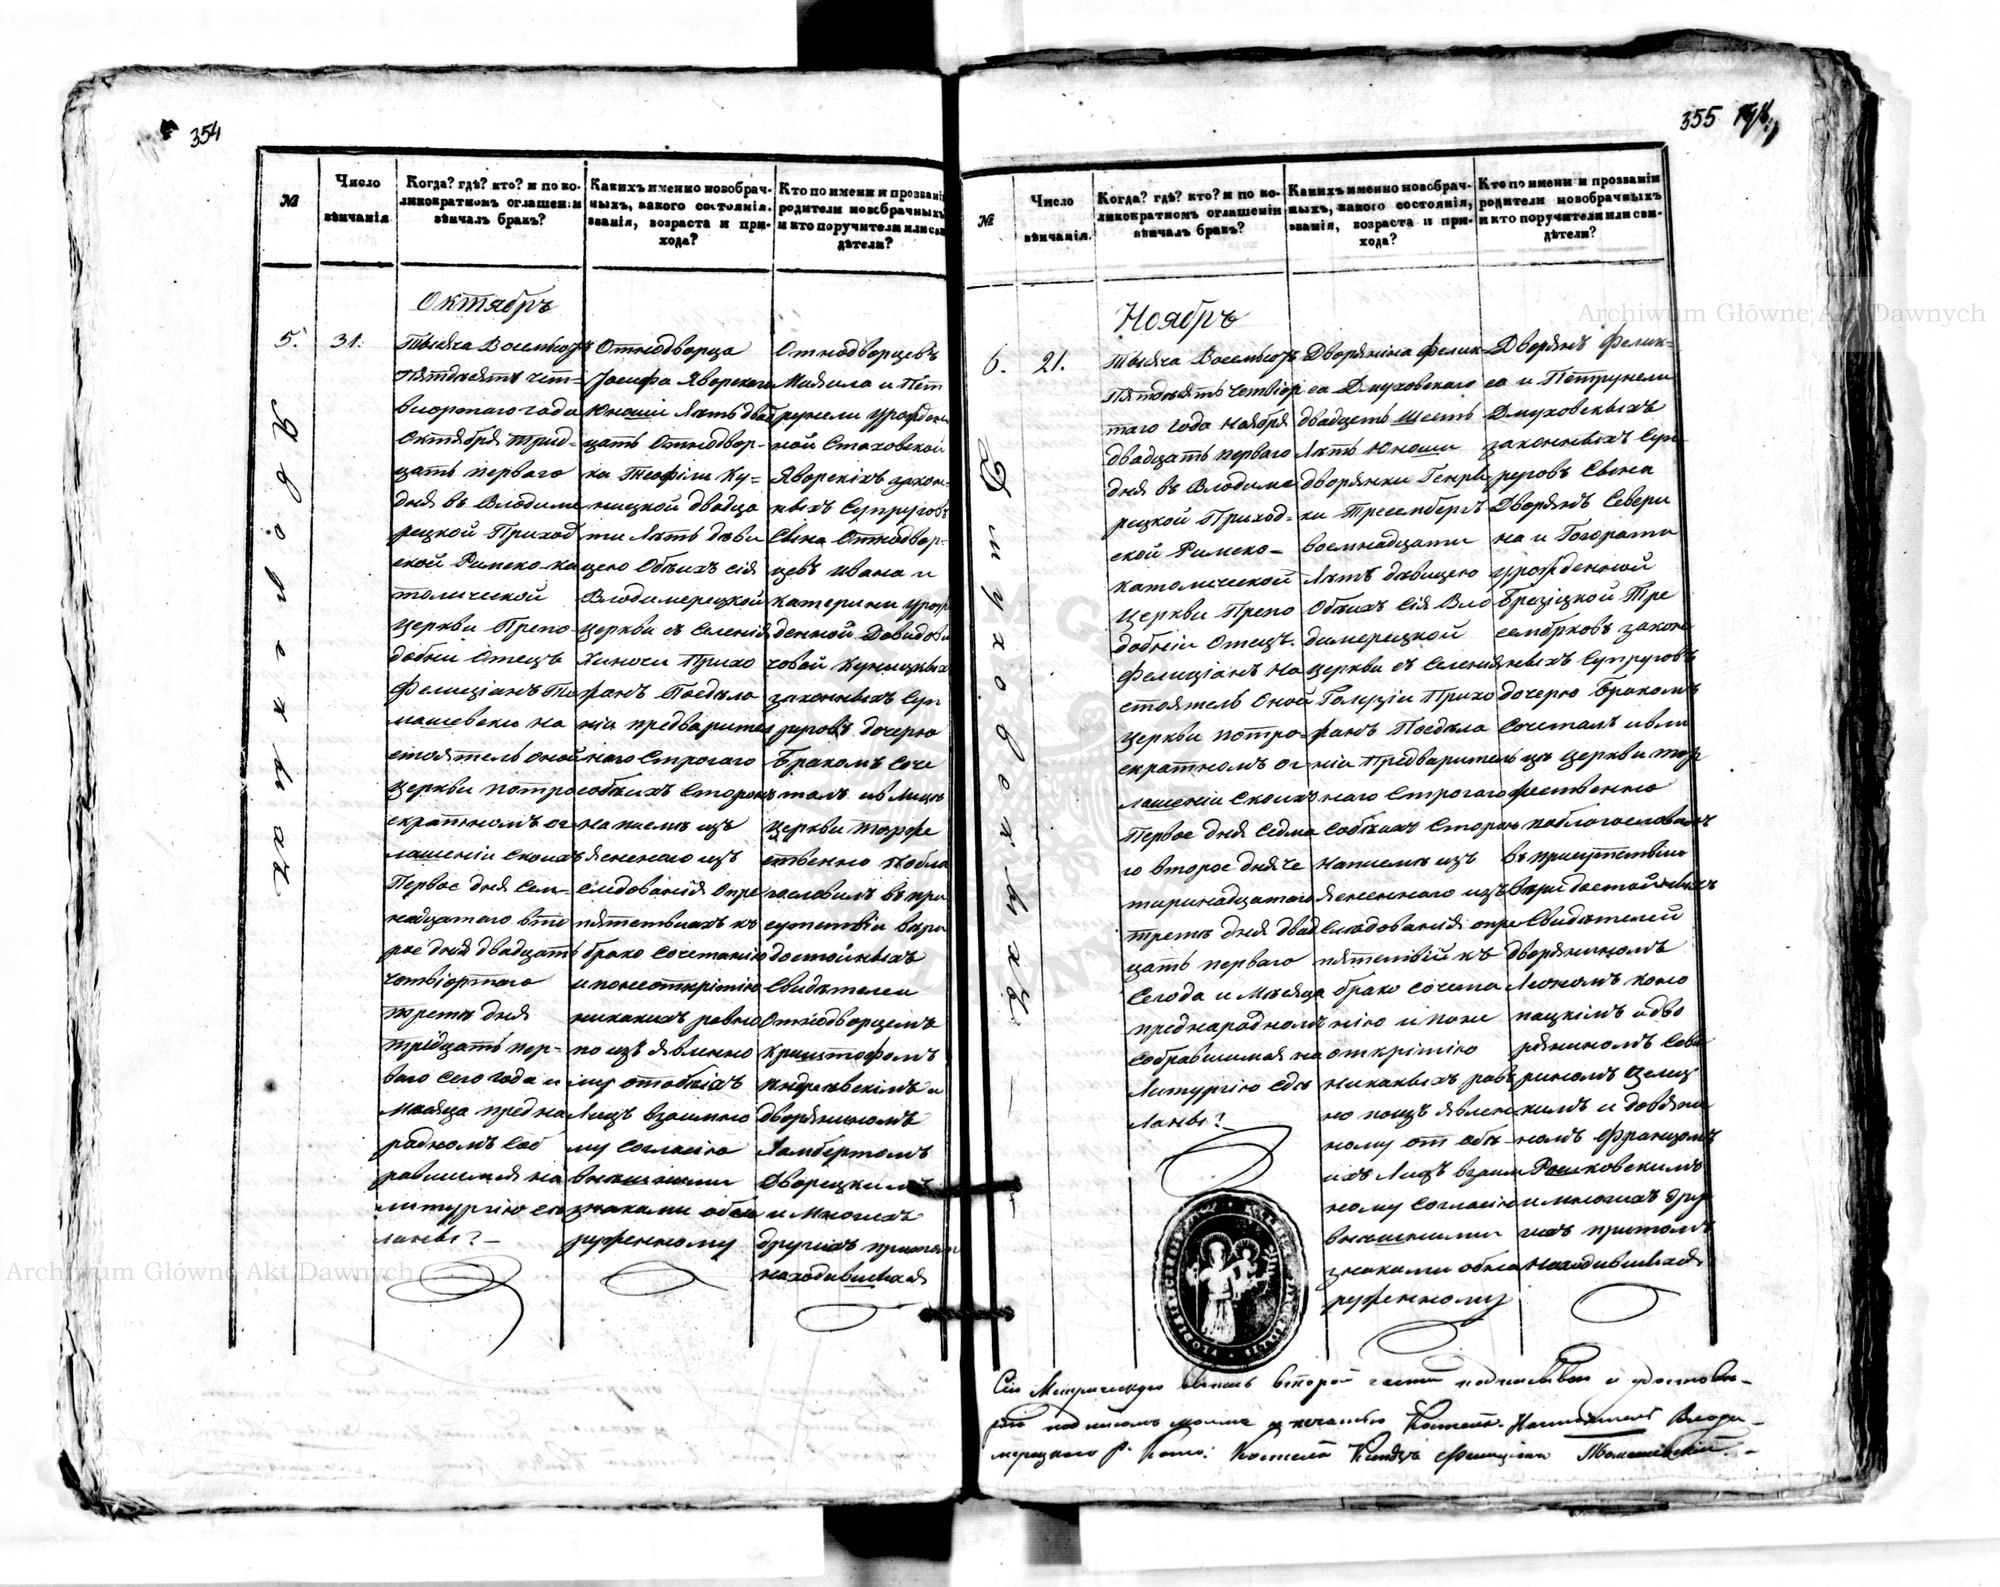 354
№
Число
вѣнчанія
Когда? гдѣ? кто? и по ко-
ликократномъ оглашеніи
вѣнчалъ бракъ?
Какихъ именно новобрач-
ныхъ, какого состоянія.
званія, возраста и при-
хода?
Кто по имени и прозванію
родители новобрачныхъ
и кто поручители или сви
дѣтели?
Октябрь
5.
31.
Тысяча Восемьсотъ
Пятдесятъ чет-
виортаго года
Октября трид-
цать перваго
дня въ Владиме
рецкой Приход
ской Римско ка
толической
церкви Препо
добни Отецъ
Фелиціанъ То
машевски на
стоятель оной
Церкви потро
екратномъ ог
лашеніи скоихъ
Первое дня Сем-
надцатаго вто
рое дня двадцать
четвіортаго
третъ дня
тридцать пер-
ваго сего года и
Месяца предна
роднымъ Соб
равшимся на
литургію ею
ланвъ?-
Отнодворца
Іосифа Яворскаго
Юноши Лѣтъ двад
цать Отнодвор-
ка Теофіли Ку=
ницкой двадца
ти Лѣтъ Дѣви
цею Обоихъ сія
Влодимерецкой
церкви съ Селенія
Хиночи Прихо
жанъ Поедѣла
ніи предварител
наго Строгаго
собѣихъ Сторонъ
написмѣ изъ
ясненого изъ
следованія опре
пятствіахъ къ
брако Сочетанію
и понеоткрітію
никакихъ равно
по изъ явленно
му отобѣихъ
Лицъ взаимно
му Согласію
внѣшними
знаками обна
руженному
Отнодворцевъ
Михаила и Пет
рунели урожден
ной Стаховской
Яворскіхъ закон
ныхъ Супруговъ
Сына Отнодвор-
цевъ Ивана и
Катерини урож
денной Довидови
човой Куницкихъ
законныхъ Суп
руговъ дочерю
Бракомъ Соче
талъ ивлицъ
церкви торже
ственно побла
гословилъ въ при
сутствіи вѣри
достойныхъ
Свидѣтелей
Отнодворцемъ
Криштофомъ
Андрживскімъ и
Дворяниномъ
Ламбертомъ
Дворецкимъ
и Многихъ
другихъ притом
находившихся
355
№
Число
вѣнчанія.
Когда? гдѣ? кто? и по ко-
ликократномъ оглашеніи
вѣнчалъ бракъ?
Какихъ именно новобрач-
ныхъ, какого состоянія,
званія, возраста и при-
хода?
Кто по имени и прозванію
родители новобрачныхъ
и кто поручители или сви-
дѣтели?
Ноябрь
6.
21.
Тысяча Восемьсотъ
Пятдесять Четвіор
таго Года Ноября
двадцать перваго
дня въ Владиме
рецкой Приход-
ской Римско-
католической
Церкви Препо
добніи Отецъ.
Фелиціанъ На
стоятель Оной
церкви потро-
екратномъ ог
лашеніи Скоихъ
Первое дня Седма
го второе дня че
тиринадцатаго
третъ дня двад
цать перваго
Сегода и Мѣсяца
преднародномъ
Собравшимся на
Литургію Едѣ
ланвъ?
Дворянина Фелик-
са Дмуховскаго
двадцеть Шесть
Лѣтъ Юноши
дворянки Генри
ки Тресембергъ
восемнадцати
Лѣтъ дѣвицею
Обѣихъ Сія Вло
димерецкой
церкви съ Селенія
Голузіи Прихо
жанъ Поедѣла
ніи Предваритель
наго Строгаго
Собѣихъ Сторон
Написмѣ изъ
ясненнаго изъ
Следованія опре
пятствій къ
брако Сочета
нію и поне
открітію
никакихъ рав
но поизъ явлен
ному от обѣ-
ихъ Лицъ взаим
ному Согласію
внѣшними
знаками обна
руженному
Дворянъ Фелик-
са и Петрунели
Дмуховскихъ
законныхъ Суп
руговъ Сына
Дворянъ Севери
на и Гонораты
урожденной
Брезіцкой Тре
сембрковъ закон
ныхъ Супруговъ
дочерю Бракомъ
Сочеталъ ивли
цѣ церкви тор
жественно
поблагословилъ
въ присутствіи
вѣри достойныхъ
Свидѣтелей
дворяниномъ
Леономъ Коно
пацкімъ идво
ряниномъ Севе
риномъ Целиц
кимъ и двѣяни
номъ Францомъ
Рошковскимъ
и многихъ дру
гихъ притомъ
находившихся
Сію Метрическую Запись второй части подписываю и удостовѣ-
ряю подписомъ моимъ и печатью Костел. Настоятель Влоди-
мерецкаго Р. Като: Костела Ксендзъ Фелиціанъ Томашевскій.-
Archiwum Główne Akt Dawnych
Archiwum Główne Akt Dawnych